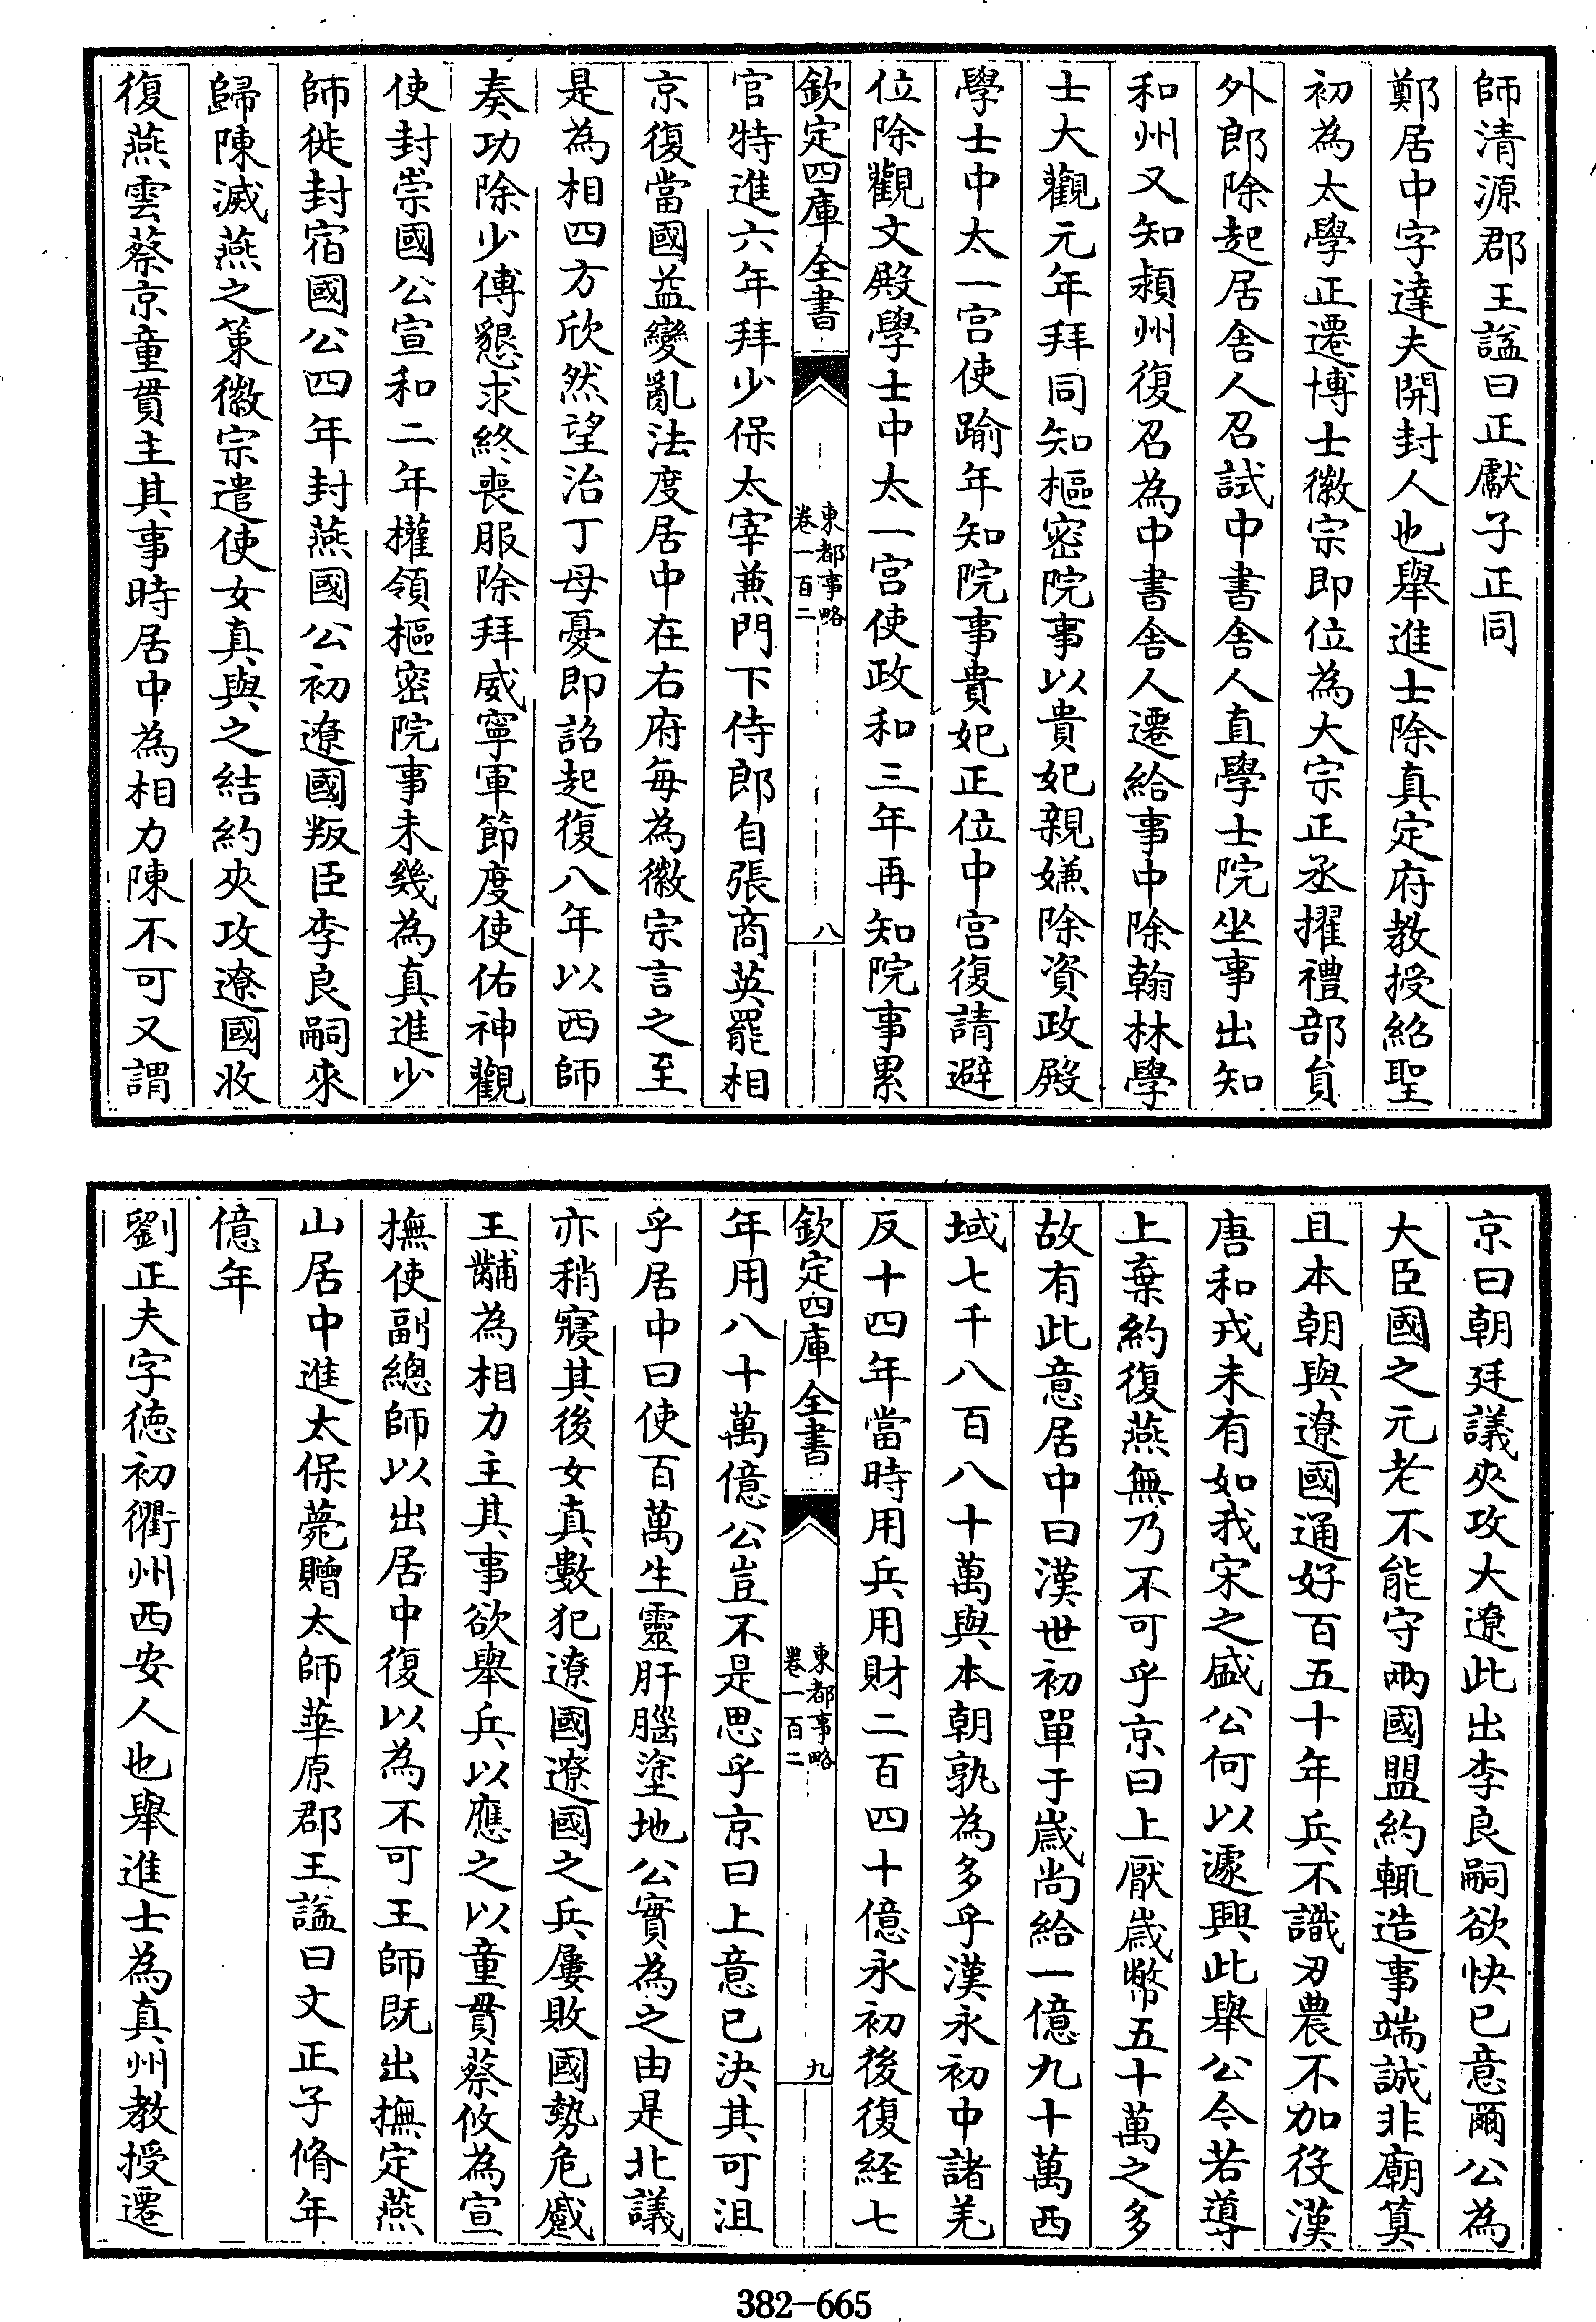 師清源郡王諡曰正獻子正同
鄭居中字達夫開封人也舉進士除真定府教授紹聖
初為太學正遷博士徽宗即位為大宗正丞擢禮部員
外郎除起居舍人召試中書舍人直學士院坐事出知
和州又知潁州復召為中書舍人遷給事中除翰林學
士大觀元年拜同知樞密院事以貴妃親嫌除資政殿
學士中太一宮使踰年知院事貴妃正位中宮復請避
位除觀文殿學士中太一宮使政和三年再知院事累
欽定四庫全書
東都事略
卷一百二
八
官特進六年拜少保太宰兼門下侍郎自張商英罷相
京復當國益變亂法度居中在右府每為徽宗言之至
是為相四方欣然望治丁母憂即詔起復八年以西師
奏功除少傅懇求終喪服除拜威寧軍節度使佑神觀
使封崇國公宣和二年權領樞密院事未幾為真進少
師徙封宿國公四年封燕國公初遼國叛臣李良嗣來
歸陳滅燕之策徽宗遣使女真與之結約夾攻遼國收
復燕雲蔡京童貫主其事時居中為相力陳不可又謂
京曰朝廷議夾攻大遼此出李良嗣欲快已意爾公為
大臣國之元老不能守兩國盟約輒造事端誠非廟算
且本朝與遼國通好百五十年兵不識刃農不加役漢
唐和戎未有如我宋之盛公何以遽興此舉公今若導
上棄約復燕無乃不可乎京曰上厭歲幣五十萬之多
故有此意居中曰漢世初單于歲尚給一億九十萬西
域七千八百八十萬與本朝孰為多乎漢永初中諸羌
反十四年當時用兵用財二百四十億永初後復經七
欽定四庫全書
東都事略
卷一百二
九
年用八十萬億公豈不是思乎京曰上意已決其可沮
乎居中曰使百萬生靈肝腦塗地公實為之由是北議
亦稍寢其後女真數犯遼國遼國之兵屢敗國勢危蹙
王黼為相力主其事欲舉兵以應之以童貫蔡攸為宣
撫使副總師以出居中復以為不可王師既出撫定燕
山居中進太保薨贈太師華原郡王諡曰文正子脩年
億年
劉正夫字德初衢州西安人也舉進士為真州教授遷
382-665